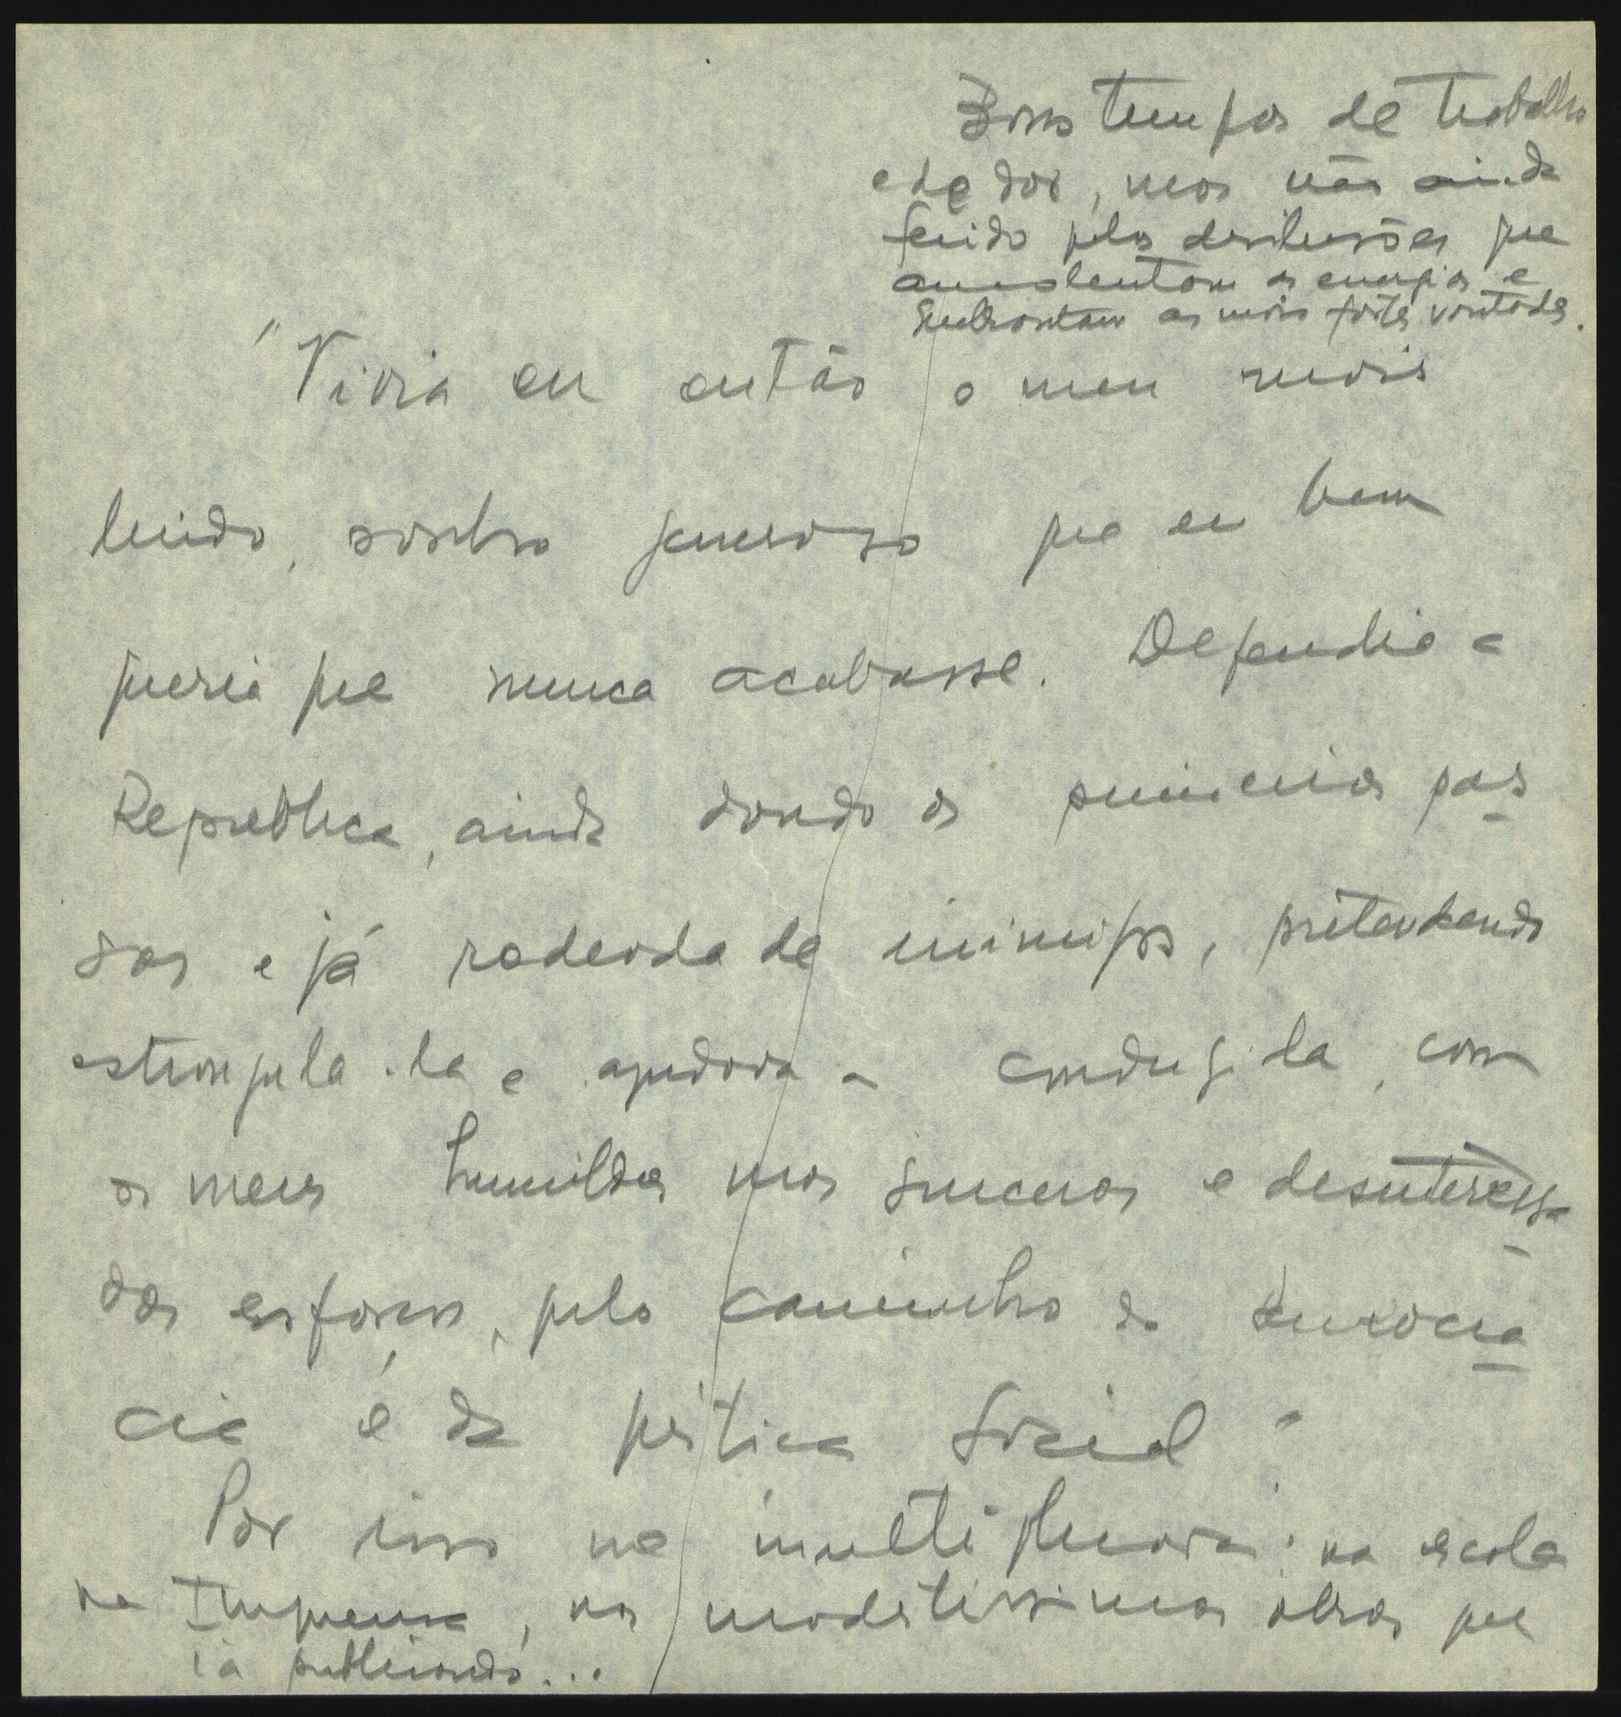 Bons tempos de trabalho
e de dor, mas não ainda
ferido pelas desilusões que
amolentam as energias e
quebrantam as mais fortes vontades.
"Vivia eu então o meu mais
lindo, sonho generoso que eu bem
queria que nunca acabasse. Defendia a
Republica, ainda dando os primeiros pas
sos e já rodeada de inimigos, pretendendo
estrangula-la e ajudava a conduzi-la, com
os meus humildes mas sinceros e desinteressa
dos esforços, pelo caminho da
cia e da justiça social"
Por isso me multiplicava: na escola
na Imprensa, nas modestissimas obras que
ia publicando...